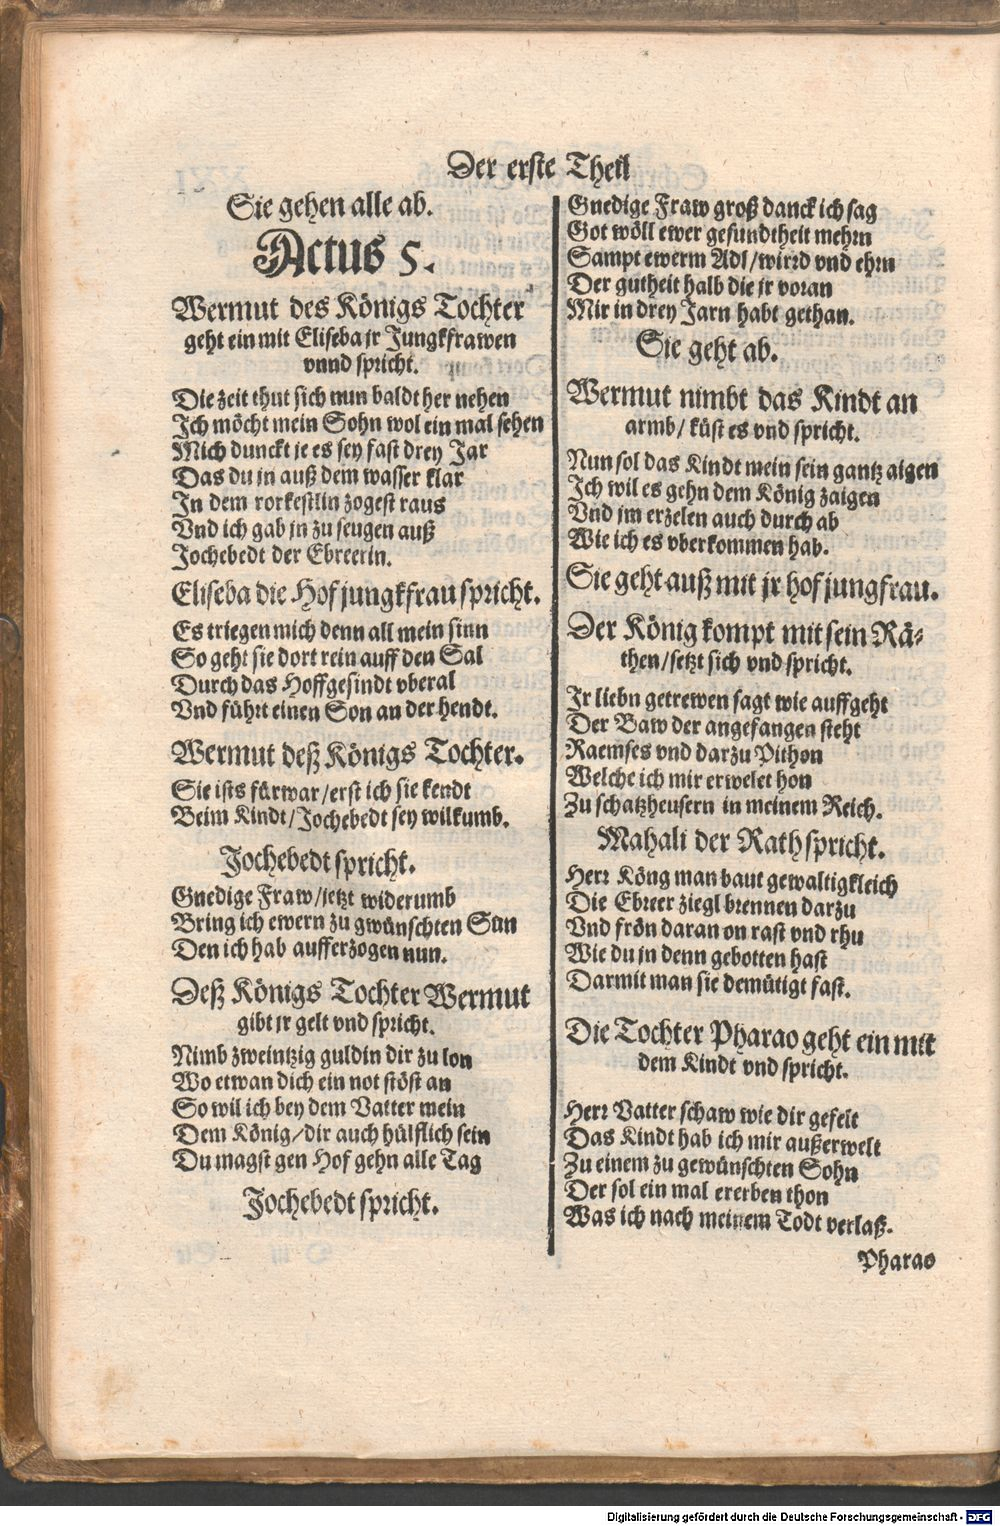 Der erste Theil
Sie gehen alle ab.
Actus 5.
Wermut des Königs Tochter
geht ein mit Eliseba jr Jungkfrawen
vnnd spricht.
Die zeit thut sich nun baldt her nehen
Ich möcht mein Sohn wol ein mal sehen
Mich dunckt je es sey fast drey Jar
Das du jn auß dem wasser klar
In dem rorkestlin zogest raus
Vnd ich gab jn zu seugen auß
Jochebedt der Ebreerin.
Eliseba die Hof jungkfrau spricht.
Es triegen mich denn all mein sinn
So geht sie dort rein auff den Sal
Durch das Hoffgesindt vberal
Vnd führt einen Son an der hendt.
Wermut deß Königs Tochter.
Sie ists fürwar/erst ich sie kendt
Beim Kindt/Jochebedt sey wilkumb.
Jochebedt spricht.
Gnedige Fraw/jetzt widerumb
Bring ich ewern zu gwünschten Sun
Den ich hab aufferzogen nun.
Deß Königs Tochter Wermut
gibt jr gelt vnd spricht.
Nimb zweintzig guldin dir zu lon
Wo etwan dich ein not stöst an
So wil ich bey dem Vatter mein
Dem König/dir auch hülflich sein
Du magst gen Hof gehn alle Tag
Jochebedt spricht.
Gnedige Fraw groß danck ich sag
Got wöll ewer gesundtheit mehrn
Sampt ewerm Adl/wirrd vnd ehrn
Der gutheit halb die jr voran
Mir in drey Jarn habt gethan.
Sie geht ab.
Wermut nimbt das Kindt an
armb/ küst es vnd spricht.
Nun sol das Kindt mein sein gantz aigen
Ich wil es gehn dem König zaigen
Vnd jm erzelen auch durch ab
Wie ich es vberkommen hab.
Sie geht auß mit jr hof jungfrau.
Der König kompt mit sein Rä-
then/setzt sich vnd spricht.
Ir liebn getrewen sagt wie auffgeht
Der Baw der angefangen steht
Raemses vnd darzu Pithon
Welche ich mir erwelet hon
Zu schatzheusern in meinem Reich.
Mahali der Rath spricht.
Herr Köng man baut gewaltigkleich
Die Ebreer ziegl brennen darzu
Vnd frön daran on rast vnd rhu
Wie du jn denn gebotten hast
Darmit man sie demütigt fast.
Die Tochter Pharao geht ein mit
dem Kindt vnd spricht.
Herr Vatter schaw wie dir gefelt
Das Kindt hab ich mir außerwelt
Zu einem zu gewünschten Sohn
Der sol ein mal ererben thon
Was ich nach meinem Todt verlaß.
Pharao
Digitalisierung gefördert durch die Deutsche Forschungsgemeinschaft - DFG